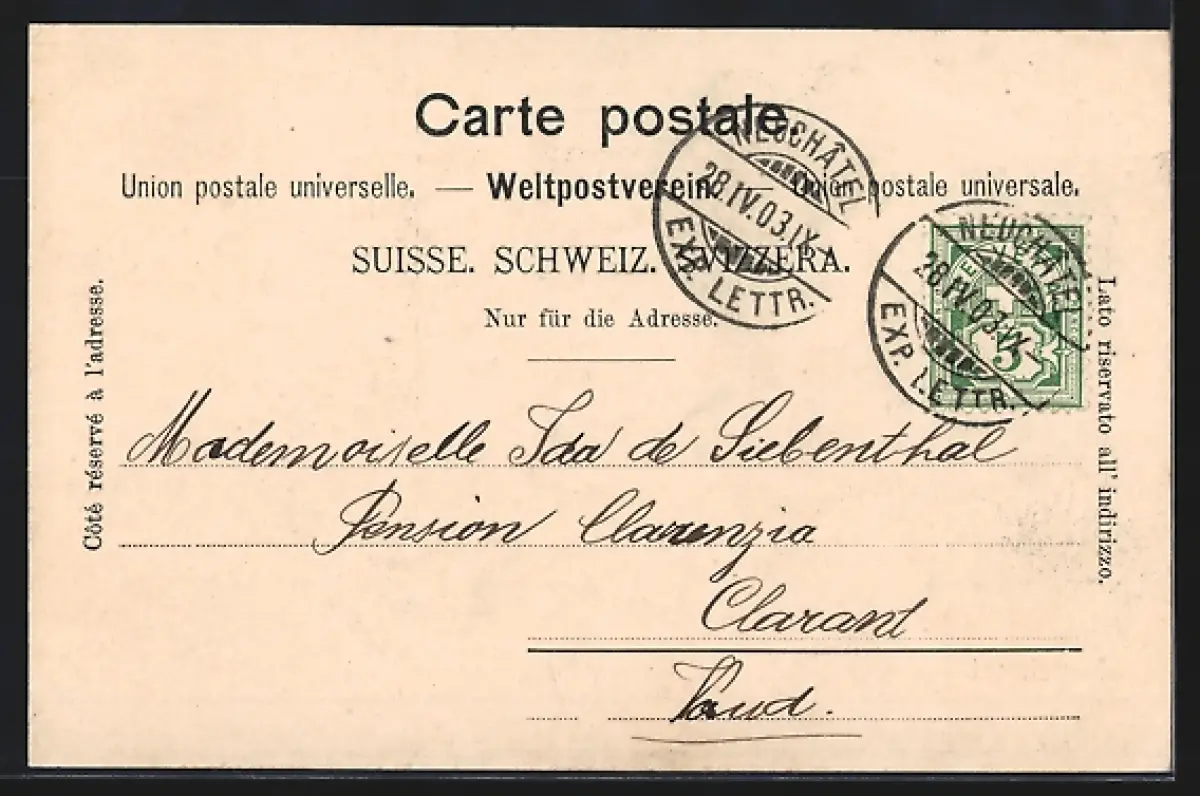 Carte postale.
Union postale universelle. — Weltpostverein. — Union postale universale.
SUISSE. SCHWEIZ. SVIZZERA.
Nur für die Adresse.
Côté réservé à l'adresse.
Lato riservato all' indirizzo.
NEUCHÂTEL
28.IV.03.IX–
EXP. LETTR.
NEUCHÂTEL
28.IV.03.IX–
EXP. LETTR.
5
Mademoiselle Ida de Siebenthal
Pension Clarenzia
Clarant
Vaud.